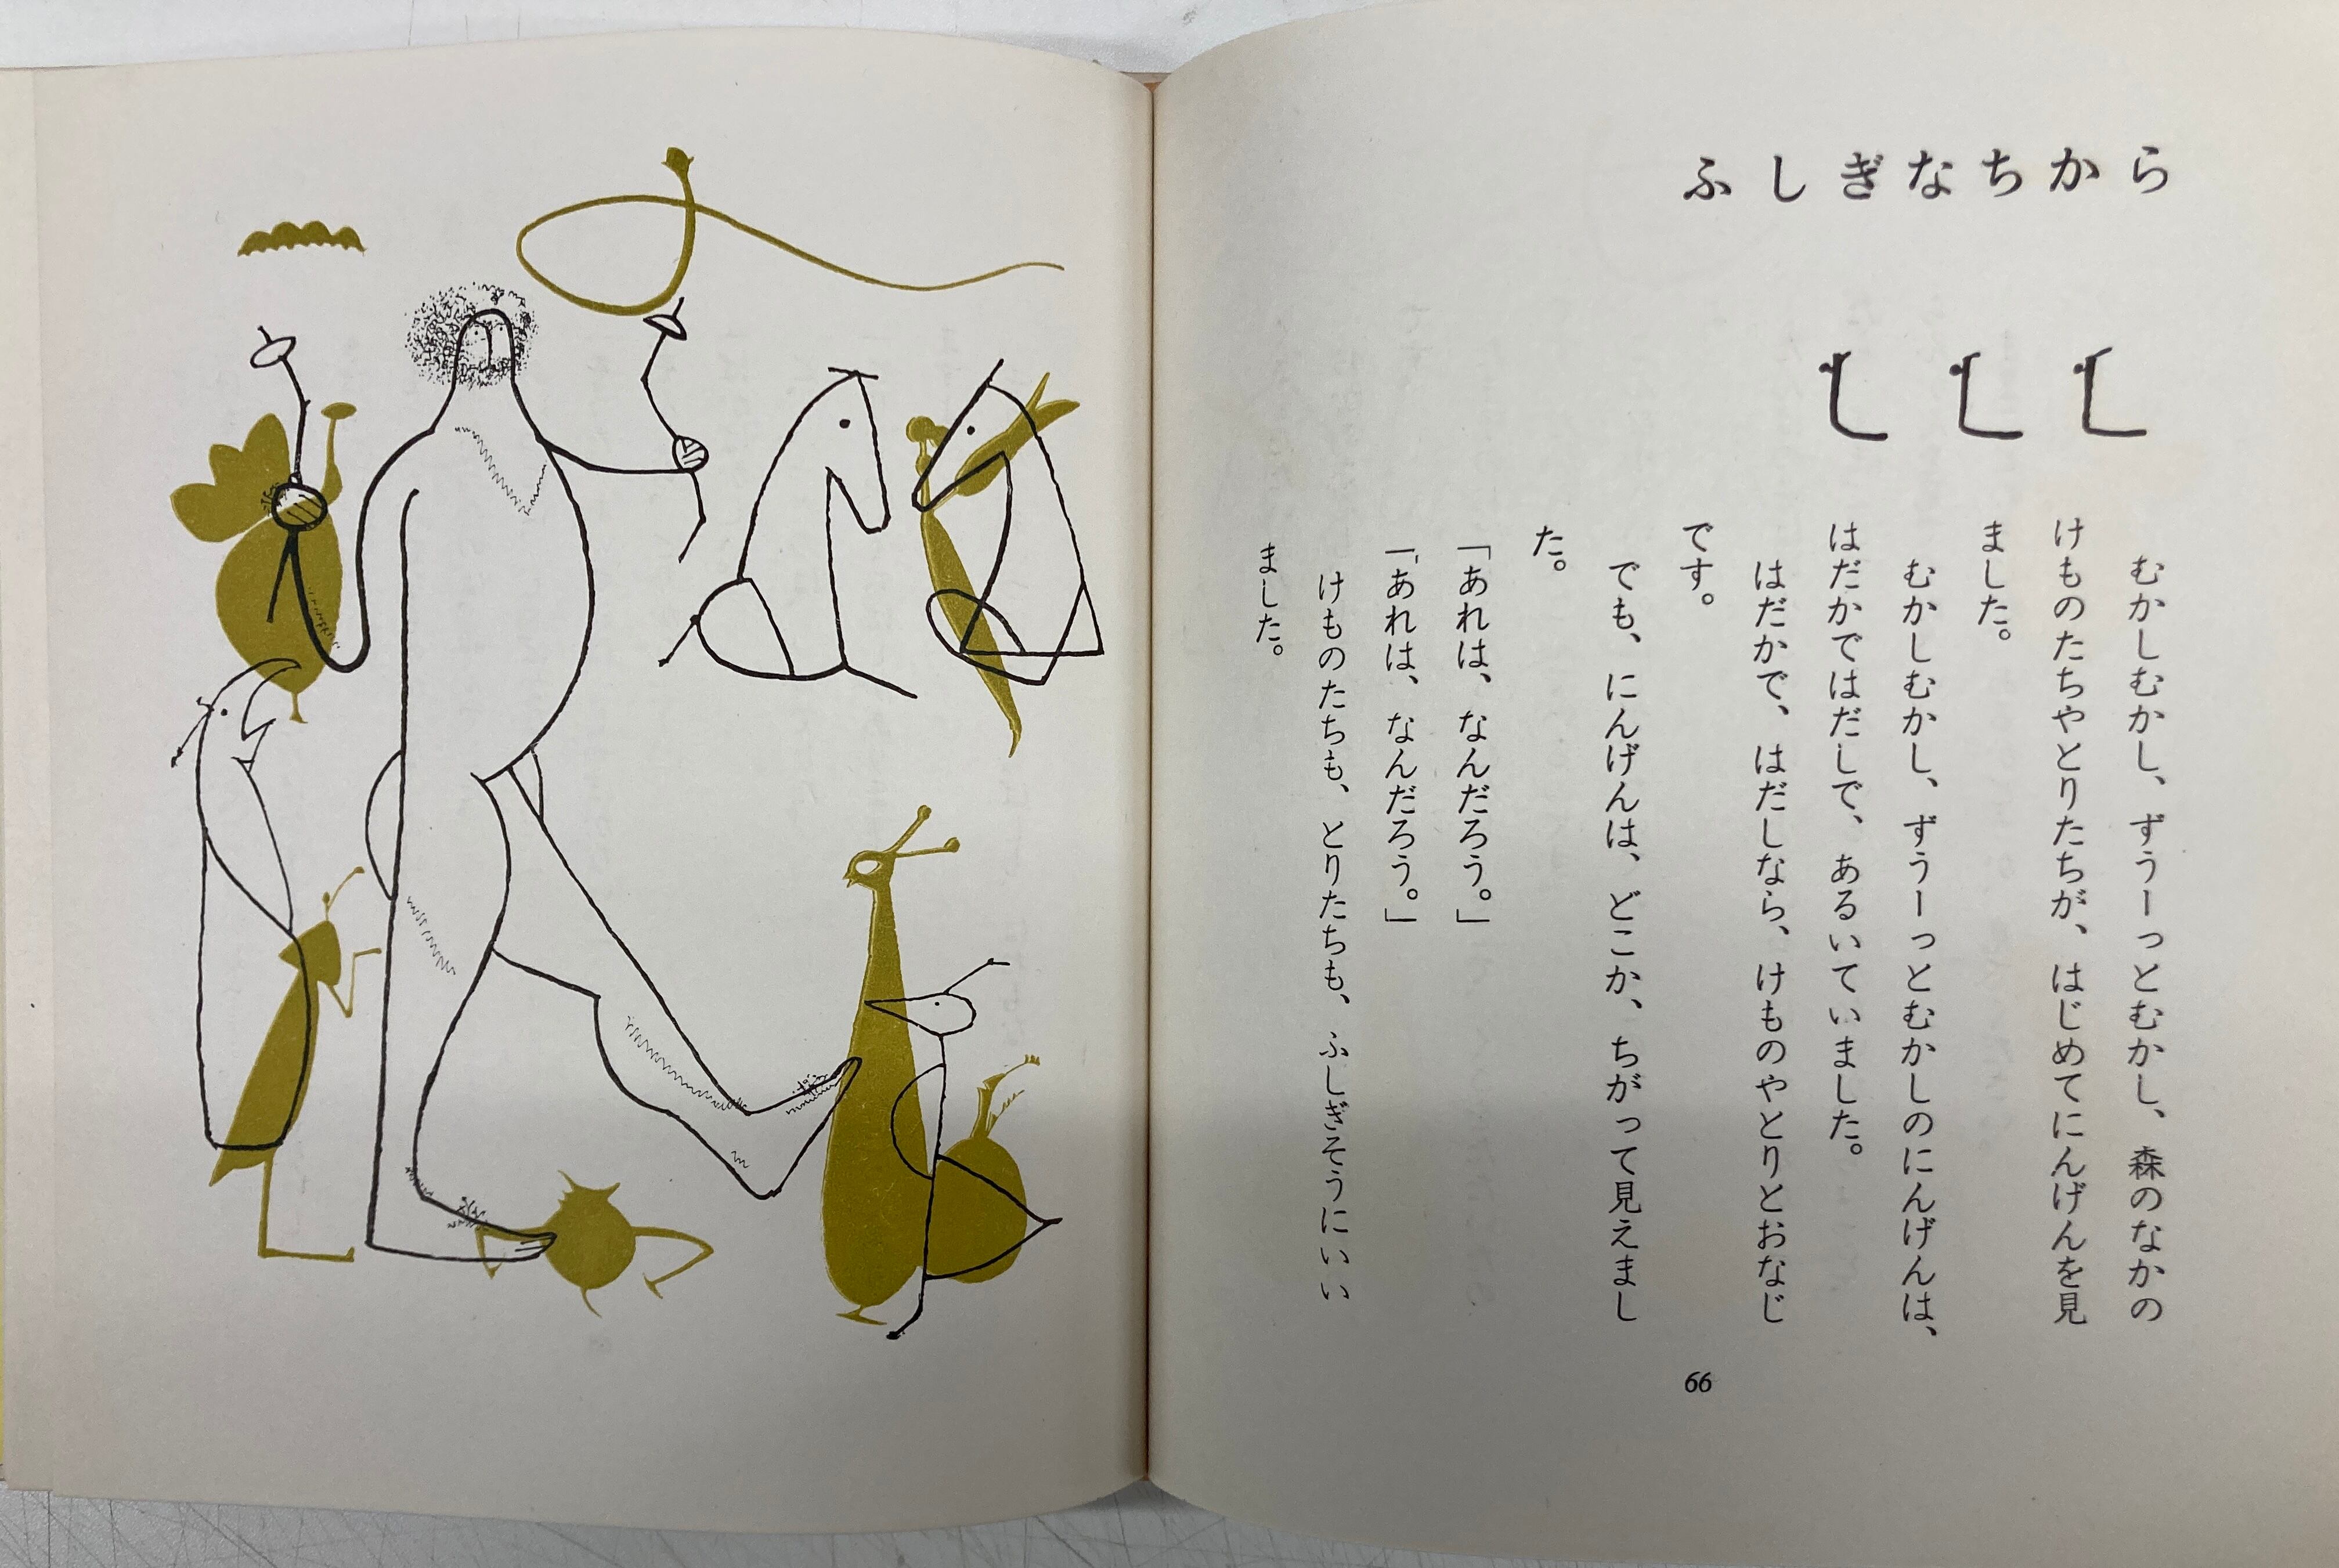 ふしぎなちから
むかしむかし、ずうーっとむかし、森のなかの
けものたちやとりたちが、はじめてにんげんを見
ました。
むかしむかし、ずうーっとむかしのにんげんは、
はだかではだしで、あるいていました。
はだかで、はだしなら、けものやとりとおなじ
です。
でも、にんげんは、どこか、ちがって見えまし
た。
「あれは、なんだろう。」
「あれは、なんだろう。」
けものたちも、とりたちも、ふしぎそうにいい
ました。
66